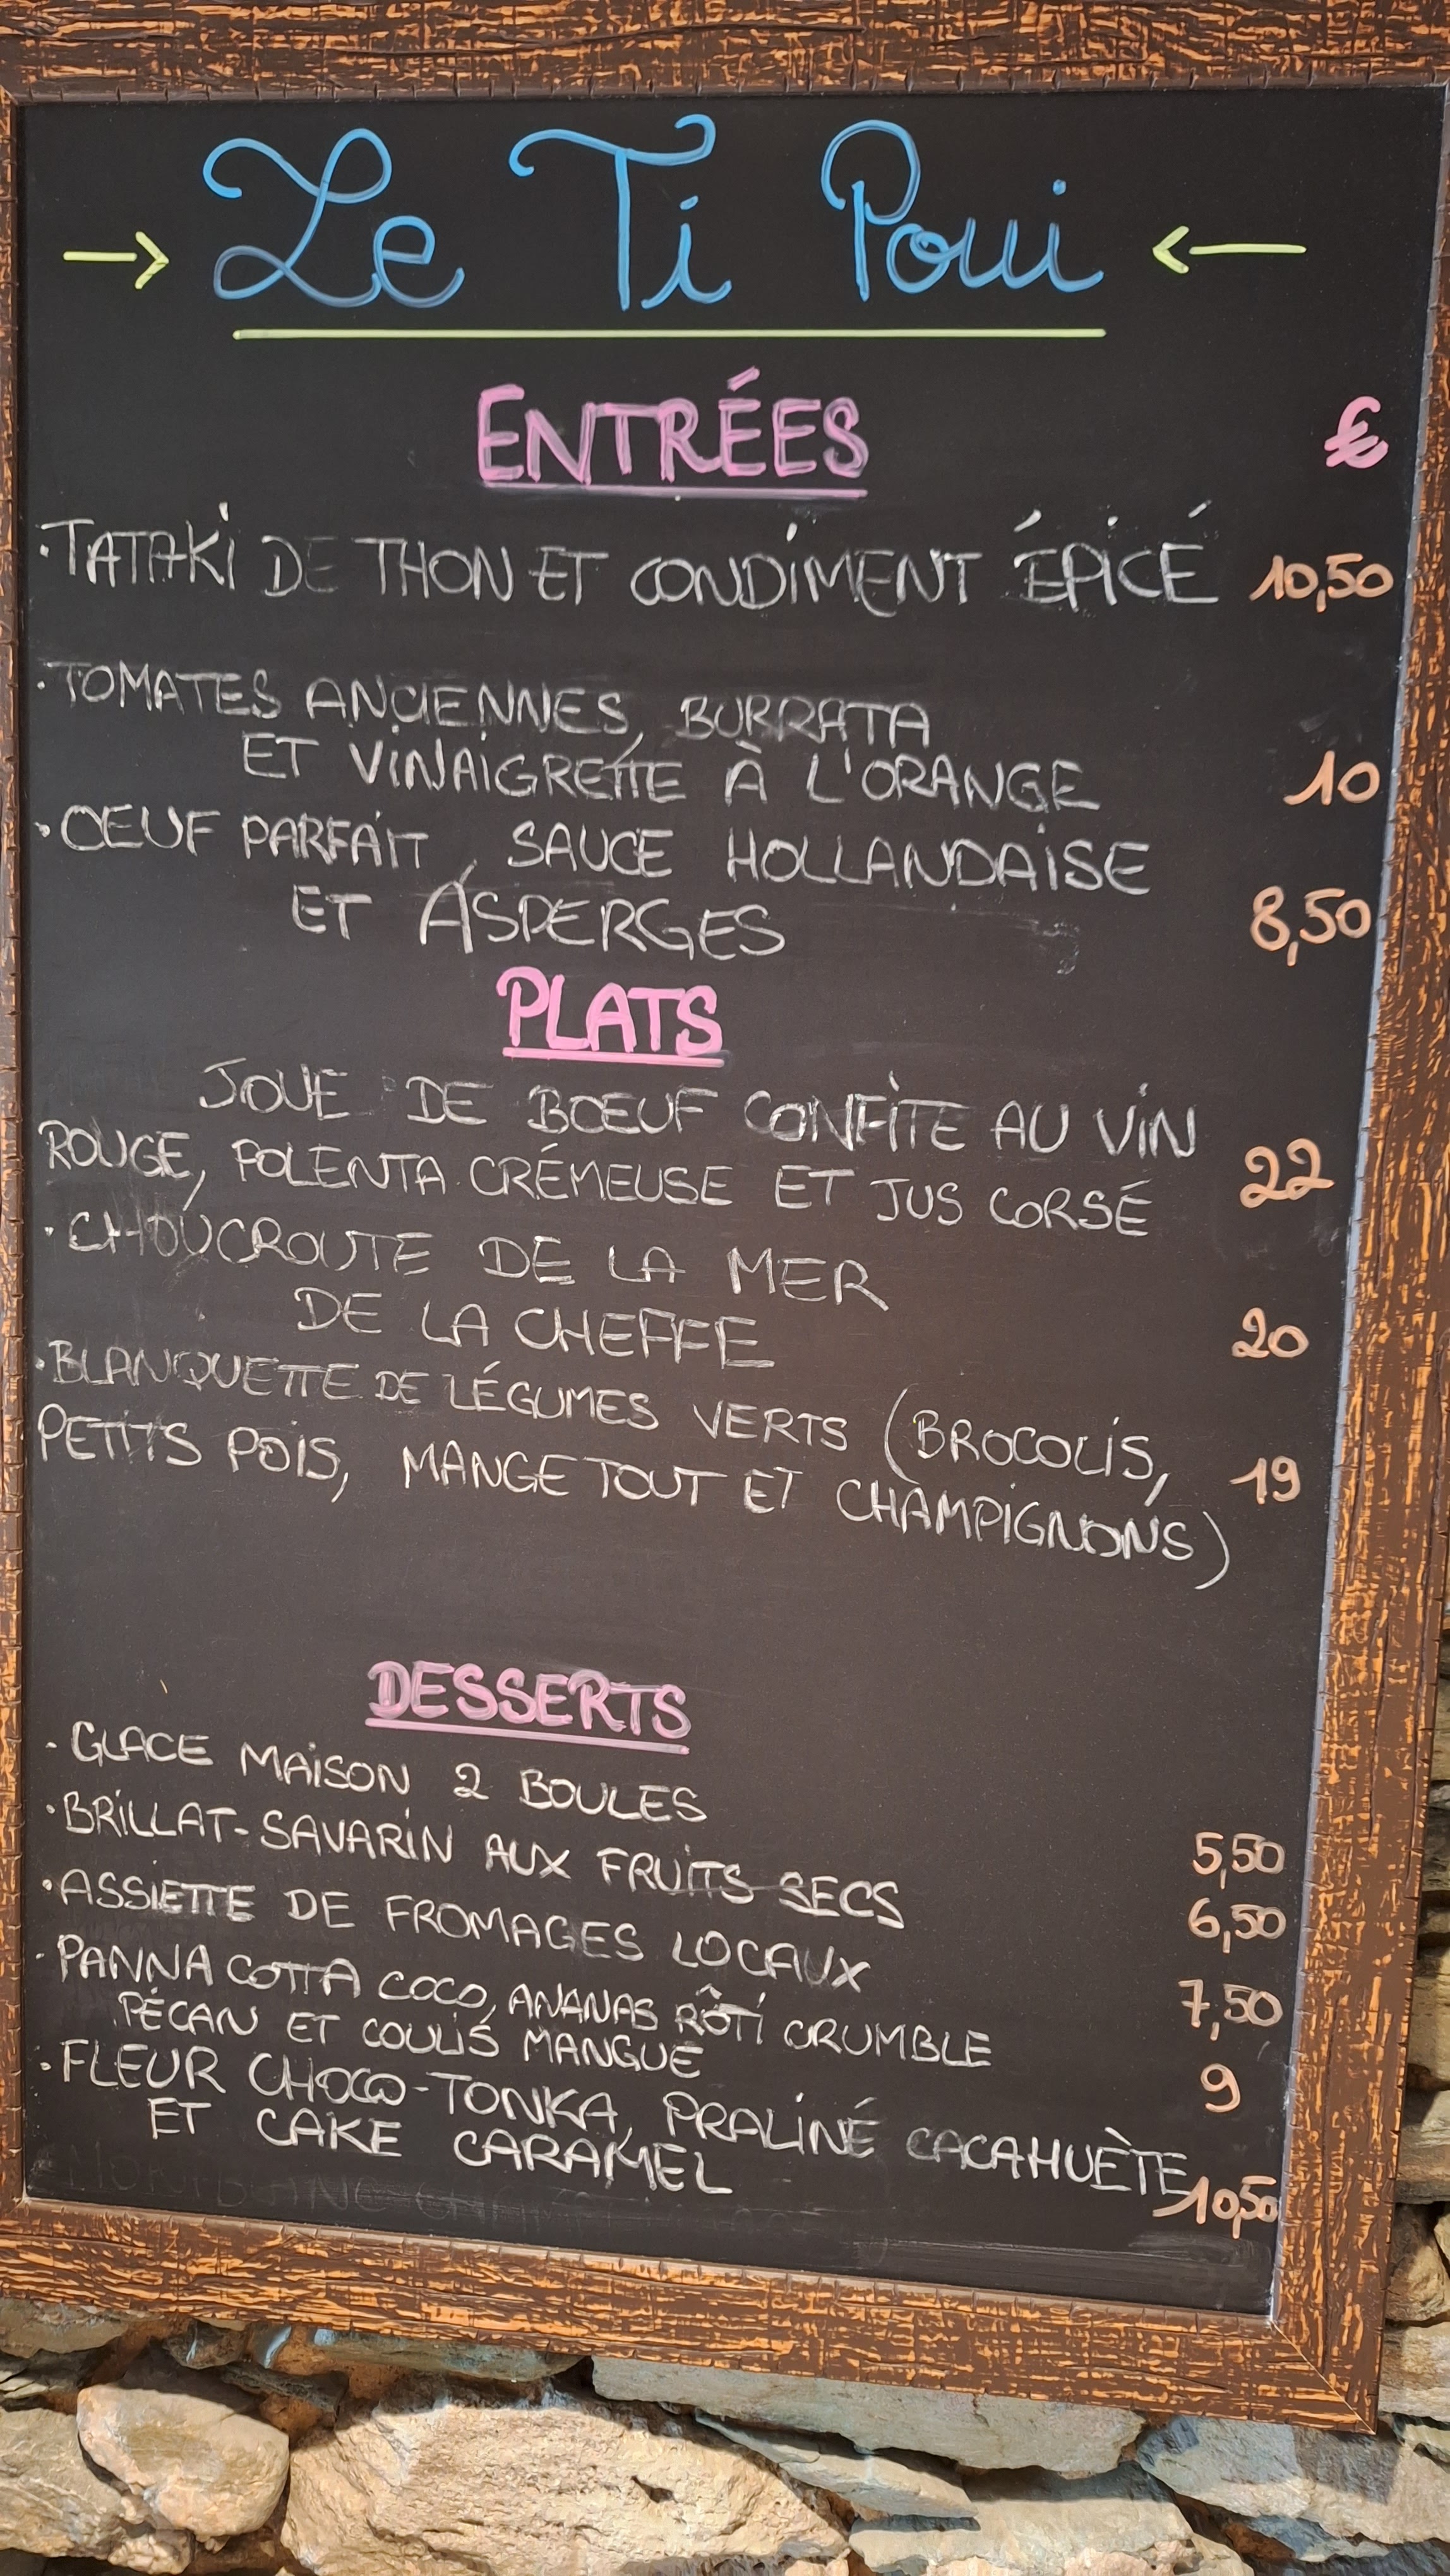 → Le Ti Poui ←
ENTRÉES €
·TATAKI DE THON ET CONDIMENT ÉPICÉ 10,50
·TOMATES ANCIENNES, BURRATA
ET VINAIGRETTE À L'ORANGE 10
·OEUF PARFAIT, SAUCE HOLLANDAISE
ET ASPERGES 8,50
PLATS
JOUE DE BOEUF CONFITE AU VIN
ROUGE, POLENTA CRÉMEUSE ET JUS CORSÉ 22
·CHOUCROUTE DE LA MER
DE LA CHEFFE 20
·BLANQUETTE DE LÉGUMES VERTS (BROCOLIS,
PETITS POIS, MANGE TOUT ET CHAMPIGNONS) 19
DESSERTS
·GLACE MAISON 2 BOULES 5,50
·BRILLAT-SAVARIN AUX FRUITS SECS 6,50
·ASSIETTE DE FROMAGES LOCAUX 7,50
·PANNA COTTA COCO, ANANAS RÔTI CRUMBLE
PÉCAN ET COULIS MANGUE 9
·FLEUR CHOCO-TONKA, PRALINÉ CACAHUÈTE
ET CAKE CARAMEL 10,50